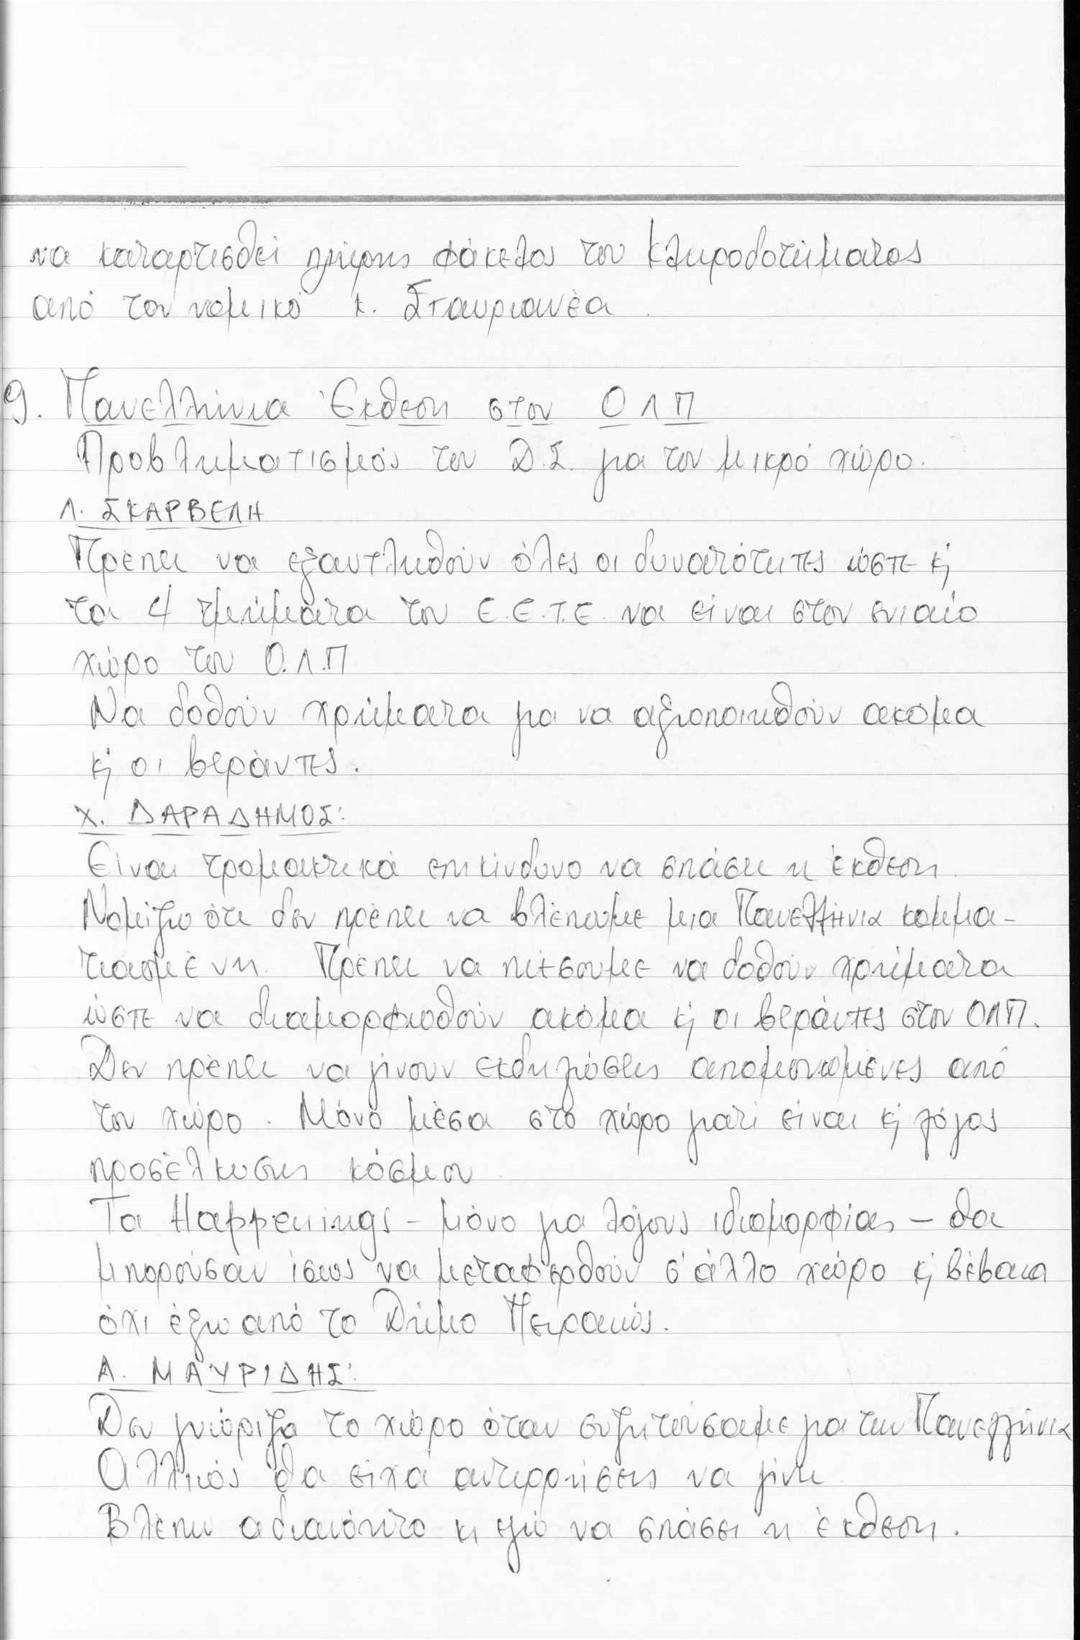 να καταρτισθεί πλήρης φάκελος του Κληροδοτήματος
από τον νομικό κ. Σταυριανέα.
9. Πανελλήνια Έκθεση στον ΟΛΠ
Προβληματισμός του Δ.Σ. για τον μικρό χώρο.
Λ. ΣΚΑΡΒΕΛΗ
Πρέπει να εξαντληθούν όλες οι δυνατότητες ώστε κ'
τα 4 τμήματα του Ε.Ε.Τ.Ε. να είναι στον ενιαίο
χώρο του Ο.Λ.Π
Να δοθούν χρήματα για να αξιοποιηθούν ακόμα
κ' οι βεράντες.
Χ. ΔΑΡΑΔΗΜΟΣ:
Είναι τρομακτικά επικίνδυνο να σπάσει η έκθεση.
Νομίζω ότι δεν πρέπει να βλέπουμε μια Πανελλήνια κομμα-
τιασμένη. Πρέπει να πιέσουμε να δοθούν χρήματα
ώστε να διαμορφωθούν ακόμα κ' οι βεράντες στον ΟΛΠ.
Δεν πρέπει να γίνουν εκδηλώσεις απομονωμένες από
τον χώρο. Μόνο μέσα στο χώρο γιατί είναι κ' λόγος
προσέλκυσης κόσμου
Τα Happenings - μόνο για λόγους ιδιομορφίας - θα
μπορούσαν ίσως να μεταφερθούν σ' άλλο χώρο κ' βέβαια
όχι έξω από το Δήμο Πειραιώς.
Α. ΜΑΥΡΙΔΗΣ:
Δεν γνώριζα το χώρο όταν συζητούσαμε για την Πανελλήνια
Αλλιώς θα είχα αντιρρήσεις να γίνει
Βλέπω αδιανόητο κι εγώ να σπάσει η έκθεση.